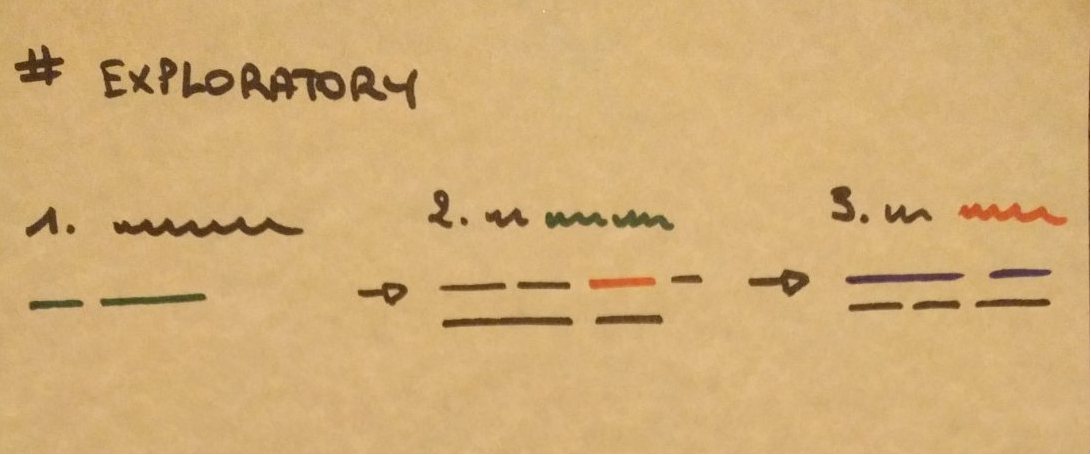 # EXPLORATORY
1. 2. 3.